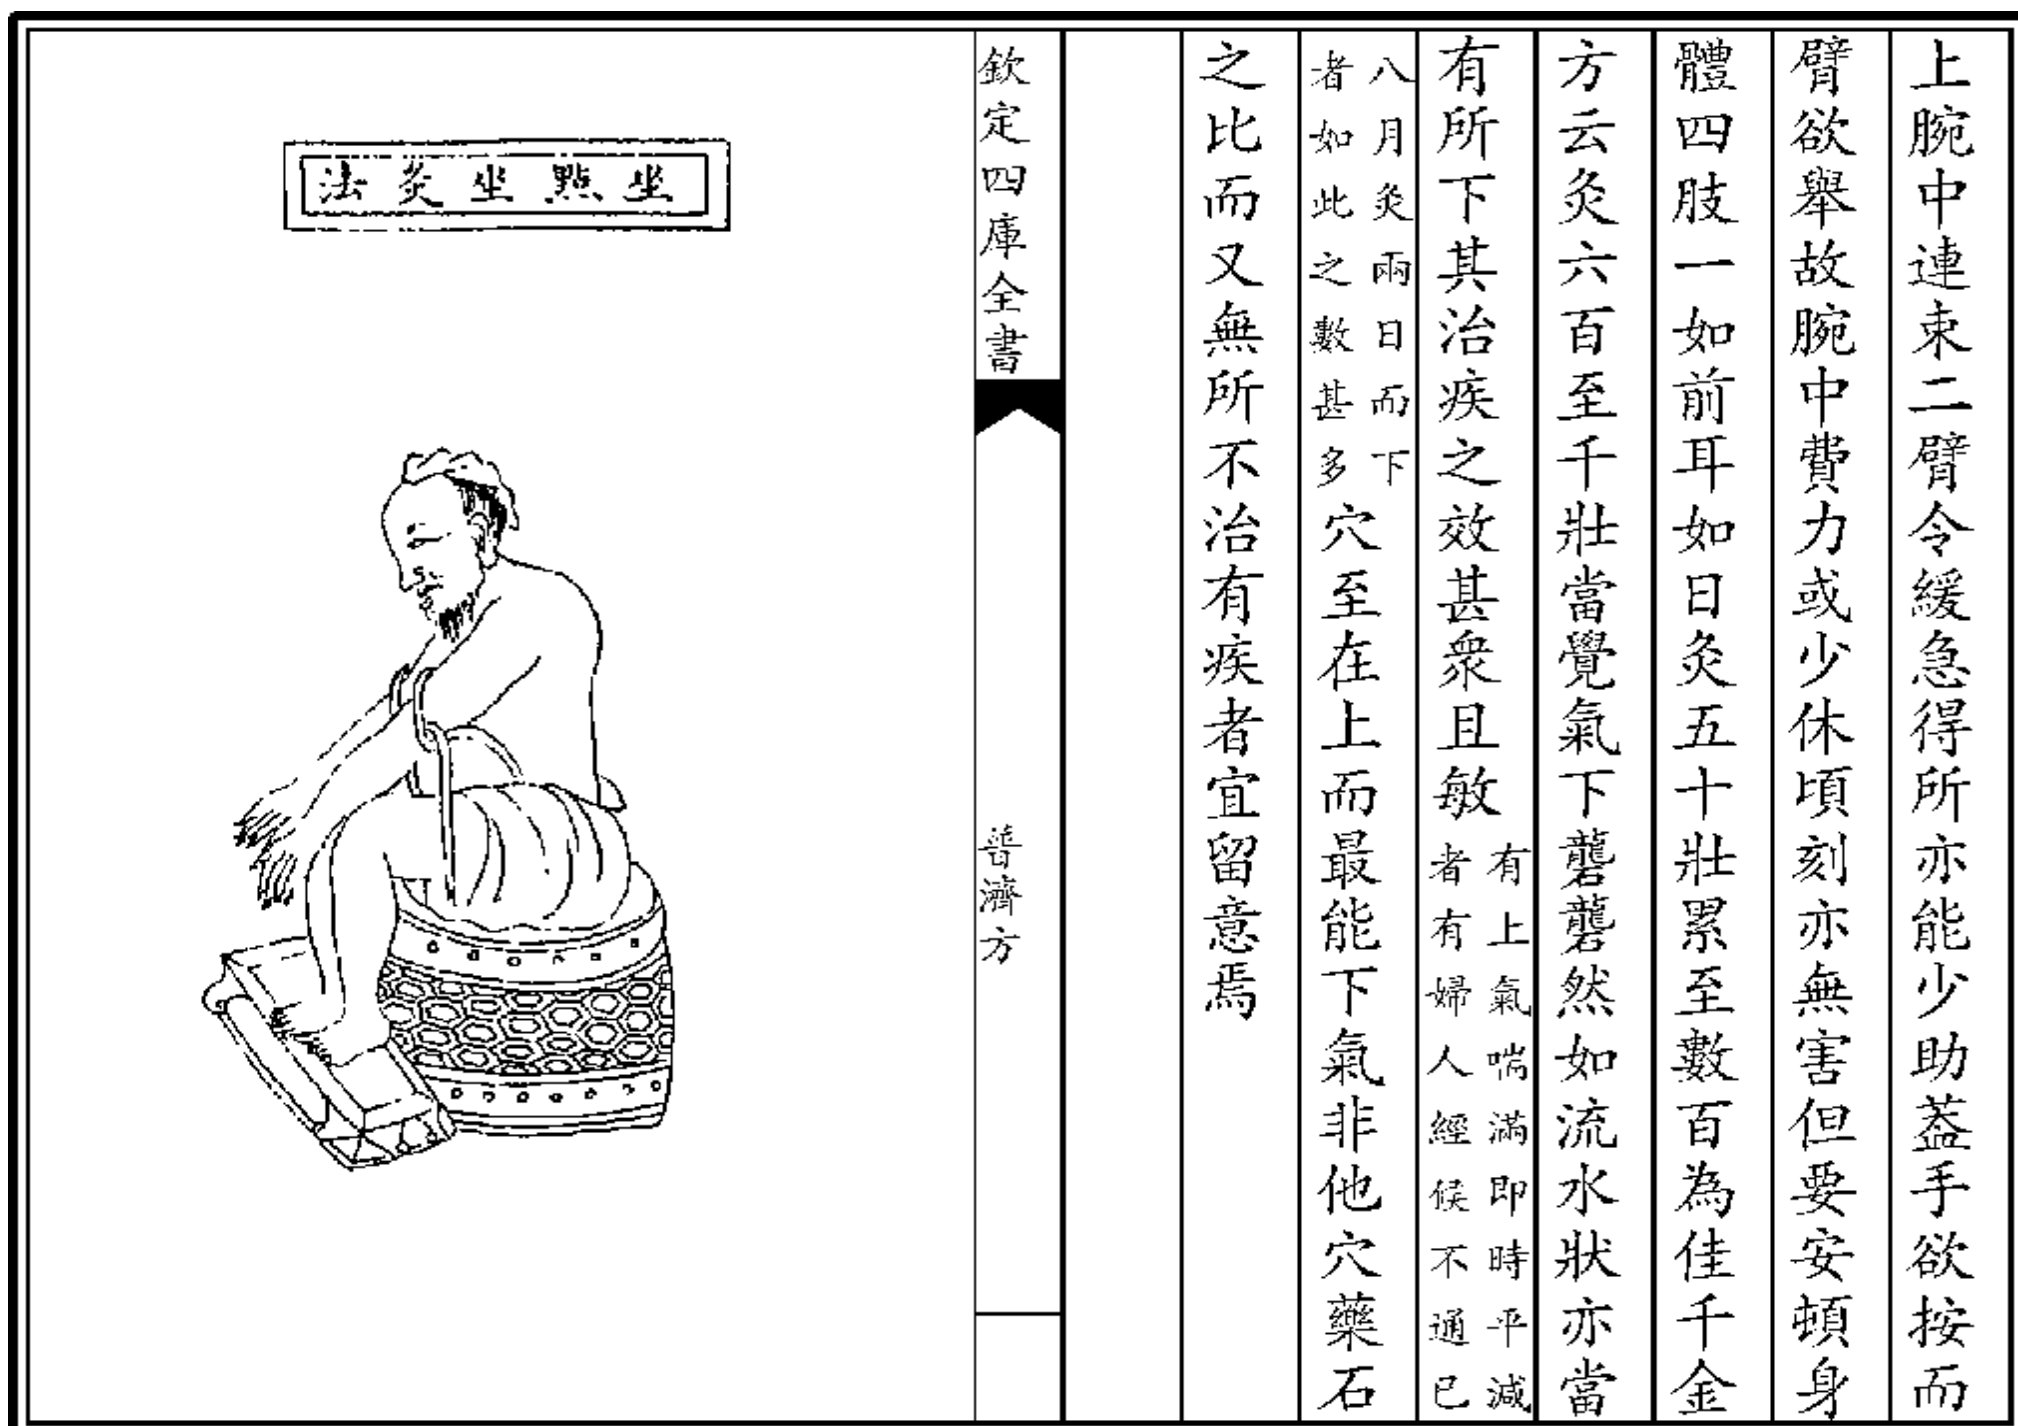 上腕中連束二臂令緩急得所亦能少助葢手欲按而
臂欲舉故腕中費力或少休頃刻亦無害但要安頓身
體四肢一如前耳如日灸五十壯累至數百為佳千金
方云灸六百至千壯當覺氣下礱礱然如流水狀亦當
有所下其治疾之效甚衆且敏
有上氣喘滿即時平減
者有婦人經候不通已
八月灸兩日而下
者如此之數甚多
穴至在上而最能下氣非他穴藥石
之比而又無所不治有疾者宜留意焉
欽定四庫全書
普濟方
坐點坐灸法